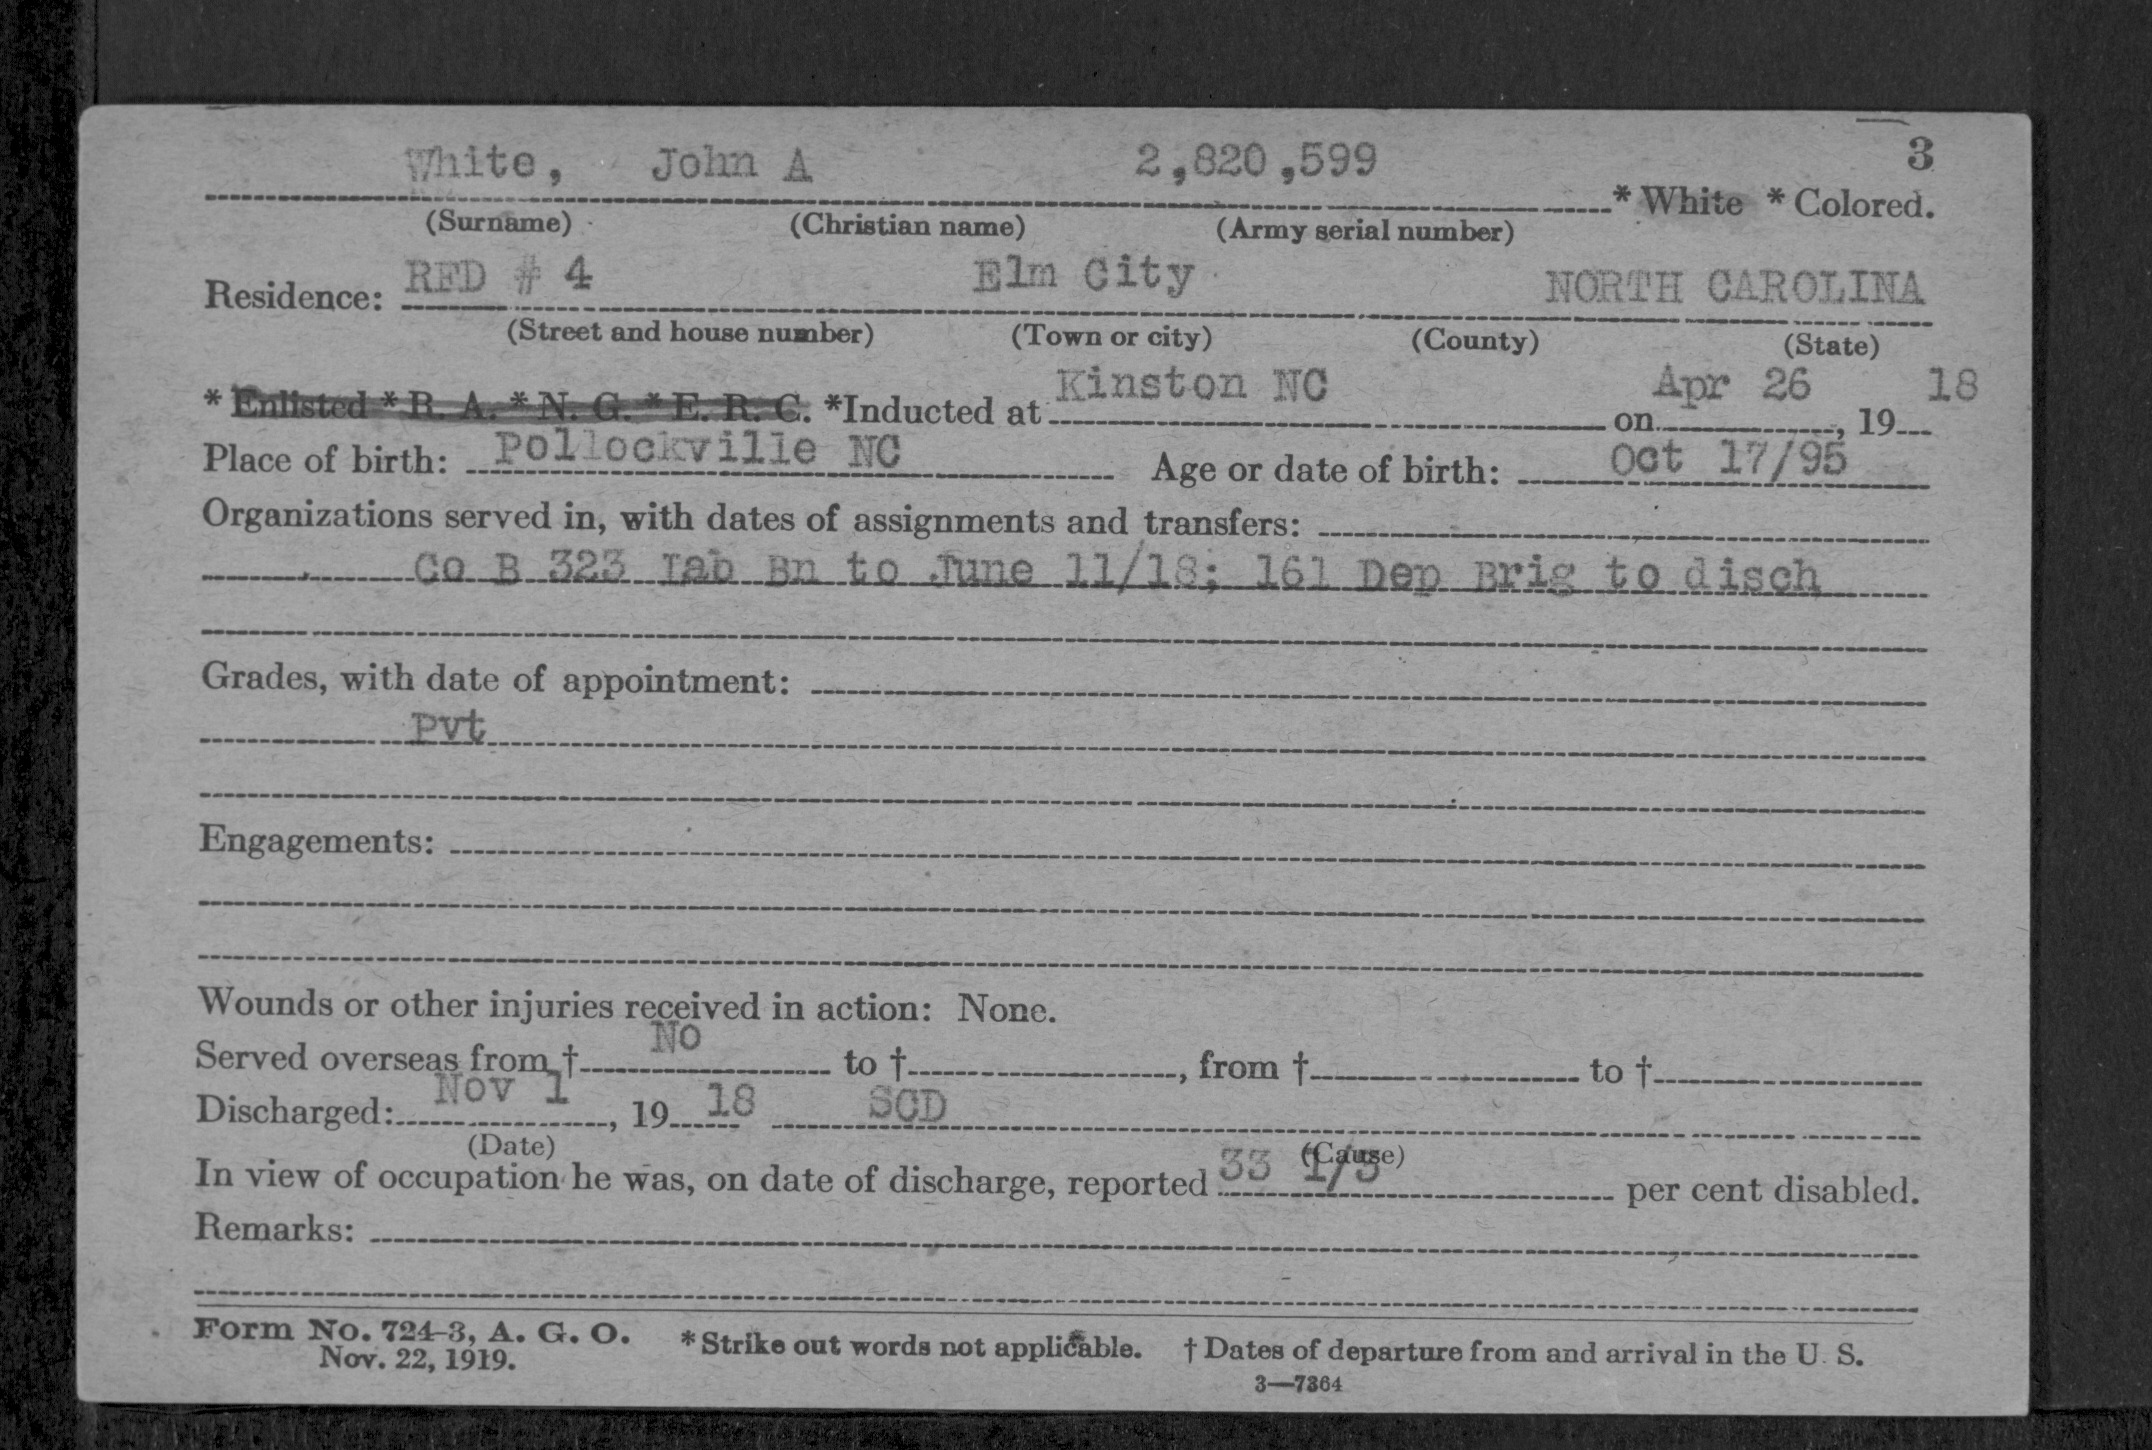 White, John A 2,820,599 3
* White * Colored.
(Surname) (Christian name) (Army serial number)
Residence: RFD # 4 Elm City NORTH CAROLINA
(Street and house number) (Town or city) (County) (State)
* Enlisted * R. A. * N. G. * E. R. C. *Inducted at Kinston NC on Apr 26, 19 18
Place of birth: Pollockville NC Age or date of birth: Oct 17/95
Organizations served in, with dates of assignments and transfers:
Co B 323 Lab Bn to June 11/18; 161 Dep Brig to disch
Grades, with date of appointment:
Pvt
Engagements:
Wounds or other injuries received in action: None.
Served overseas from † No to †, from † to †
Discharged: Nov 1, 19 18 SCD
(Date) (Cause)
In view of occupation he was, on date of discharge, reported 33 1/3 per cent disabled.
Remarks:
Form No. 724-3, A. G. O. *Strike out words not applicable. † Dates of departure from and arrival in the U. S.
Nov. 22, 1919.
3—7364